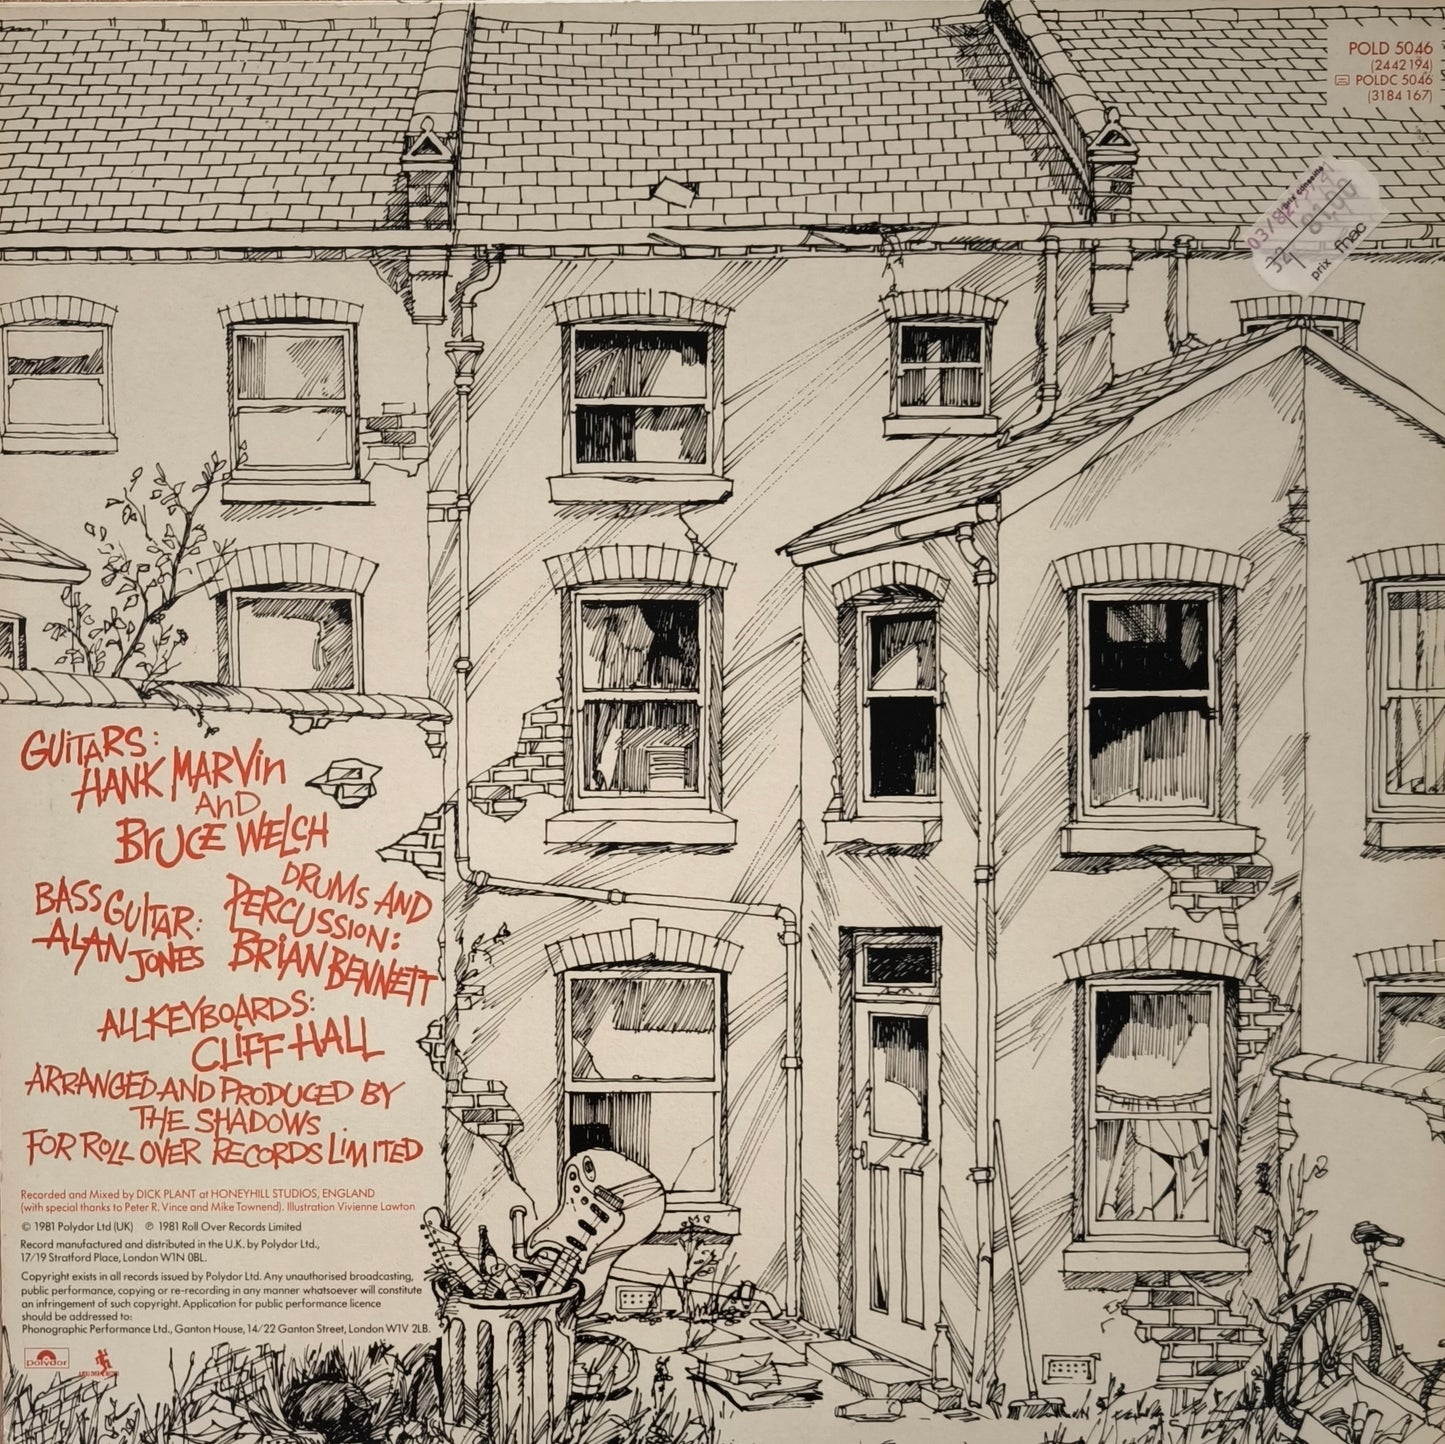 POLD 5046
(2442 194)
POLDC 5046
(3184 167)
prix fnac
GUITARS:
HANK MARVIN
AND
BRUCE WELCH
BASS GUITAR:
ALAN JONES
DRUMS AND
PERCUSSION:
BRIAN BENNETT
ALL KEYBOARDS:
CLIFF HALL
ARRANGED AND PRODUCED BY
THE SHADOWS
FOR ROLL OVER RECORDS LIMITED
Recorded and Mixed by DICK PLANT at HONEYHILL STUDIOS, ENGLAND
(with special thanks to Peter R. Vince and Mike Townend). Illustration Vivienne Lawton
© 1981 Polydor Ltd (UK) ℗ 1981 Roll Over Records Limited
Record manufactured and distributed in the U.K. by Polydor Ltd.,
17/19 Stratford Place, London W1N 0BL.
Copyright exists in all records issued by Polydor Ltd. Any unauthorised broadcasting,
public performance, copying or re-recording in any manner whatsoever will constitute
an infringement of such copyright. Application for public performance licence
should be addressed to:
Phonographic Performance Ltd., Ganton House, 14/22 Ganton Street, London W1V 2LB.
polydor